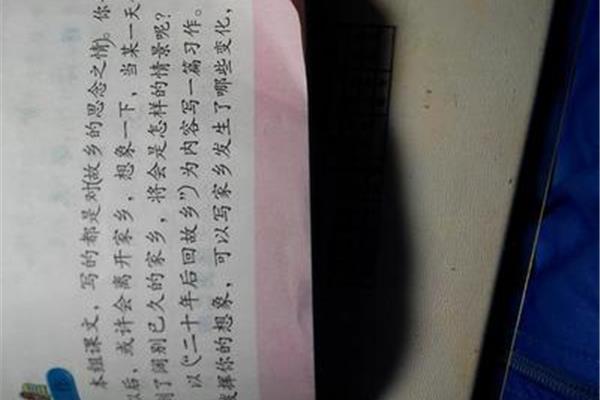 本组课文，写的都是对(故乡的思念之情)。你
以后，或许会离开家乡，想象一下，当某一天
到了阔别已久的家乡，将会是怎样的情景呢？
以(“二十年后回故乡”)为内容写一篇习作。
发挥你的想象，可以写家乡发生了哪些变化，